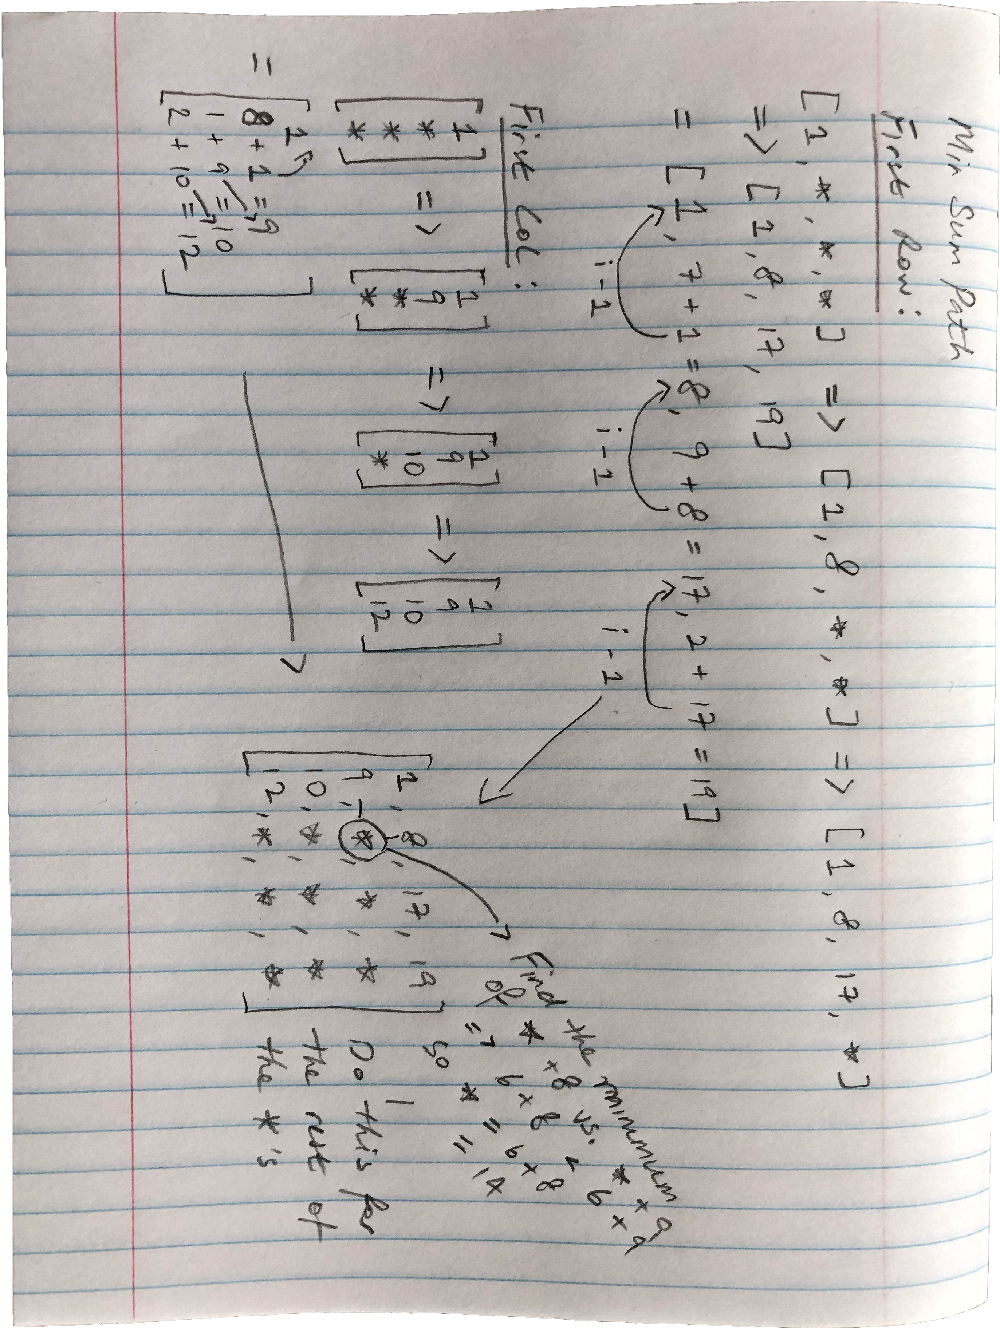 Min Sum Path
First Row:
[1, *, *, *] => [1, 8, *, *] => [1, 8, 17, *]
=> [1, 8, 17, 19]
= [1, 7+1=8, 9+8=17, 2+17=19]
i-1 i-1 i-1
First Col:
[1 * * *] => [1 9 * *] => [1 9 10 *] => [1 9 10 12]
= [1
8+1=9
1+9=10
2+10=12]
[1, 8, 17, 19
9, *, *, *
10, *, *, *
12, *, *, *]
Find the minimum
of * +8 vs. * +9
=> 6+8 < 6+9
so * = 6+8
= 14
Do this for
the rest of
the *'s